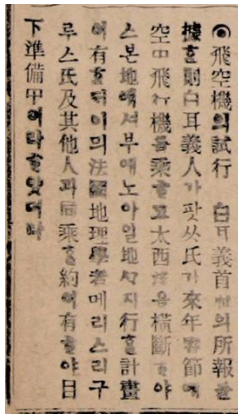 ◎飛空機의試行 白耳義首府의所報를
據ᄒᆞᆫ則白耳義人가팟쓰氏가來年春節에
空中飛行機를乘ᄒᆞ고太西洋을橫斷ᄒᆞ야
스본地에셔부에노아일地ᄭᆞ지行ᄒᆞᆯ計畫
이有ᄒᆞᆫᄃᆡ이의法國地理學者메리스리구
루스氏及其他人과同乘ᄒᆞᆯ約이有ᄒᆞ야目
下準備中이라ᄒᆞ얏더라